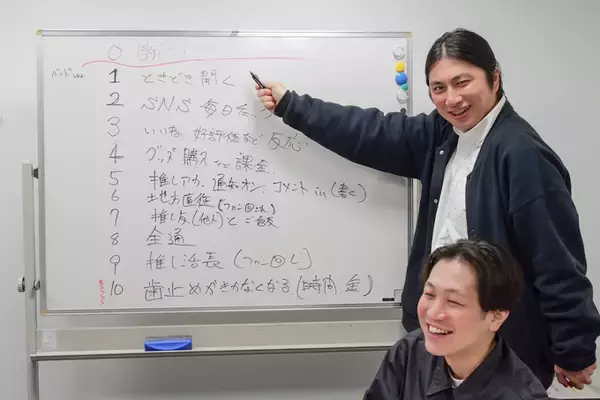 0
バンドver.
1 ときどき聞く
2 SNS 毎日
3 いいね、好評価など 反応
4 グッズ購入など 課金
5 推しアカ、通知オン、コメントin(書く)
6 地方遠征(ファン
7 推し友(他人)とご飯
8 全通
9 推し活長(ファン
10 歯止めがきかなくなる(時間 金)